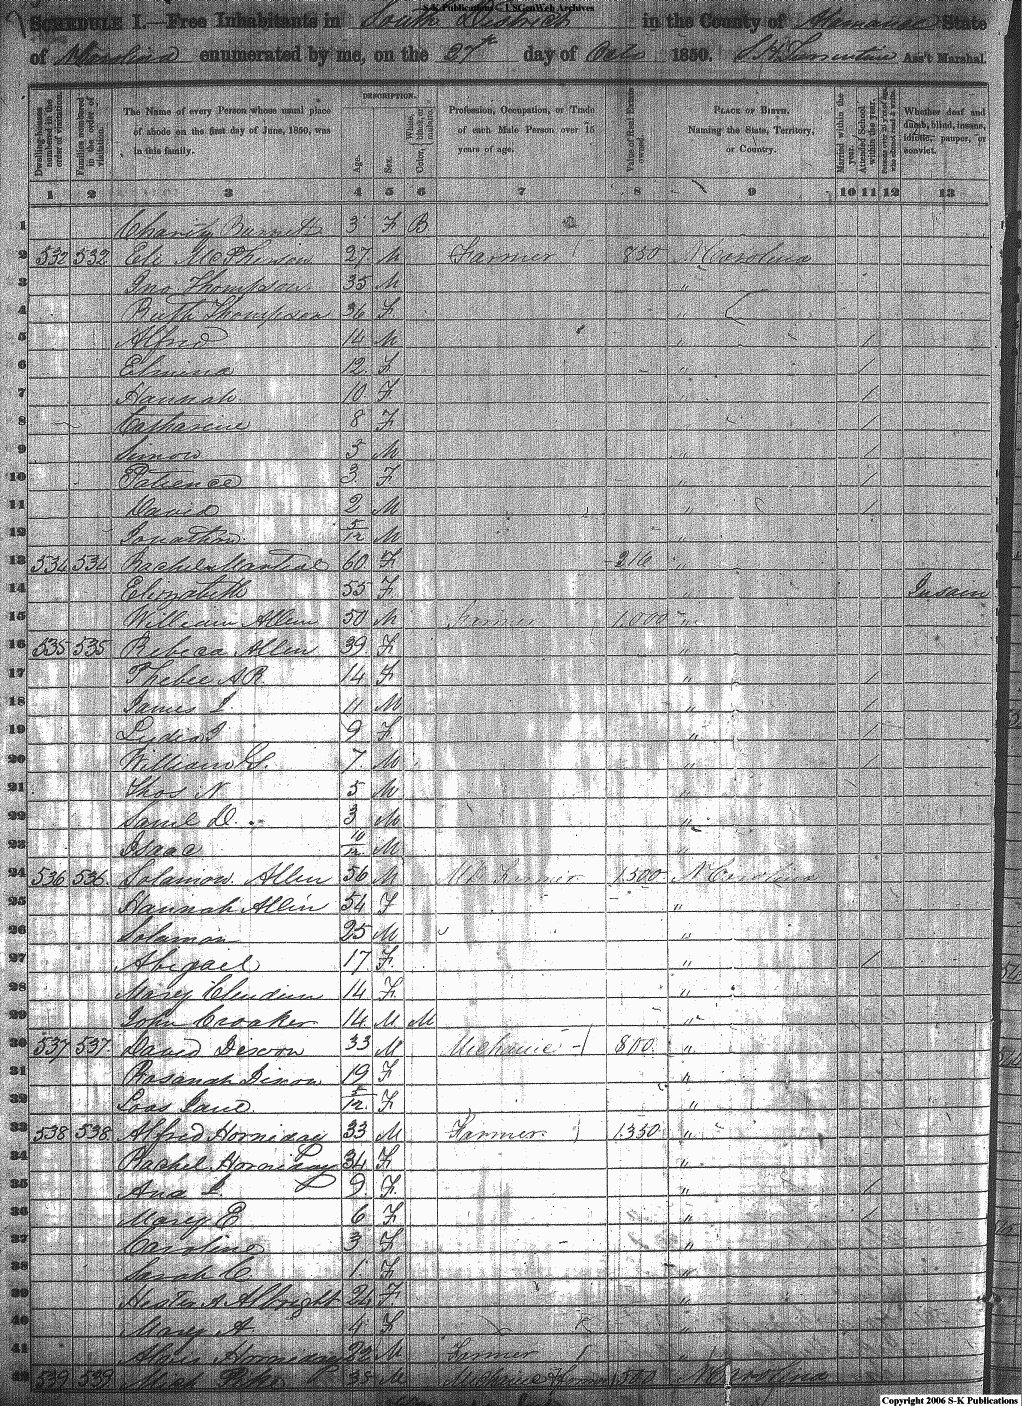 S-K Publications - USGenWeb Archives
SCHEDULE I.—Free Inhabitants in South District in the County of Alamance State
of N Carolina enumerated by me, on the 27th day of Oct 1850. Ass't Marshal.
Dwelling-houses numbered in the order of visitation. Families numbered in the order of visitation. The Name of every Person whose usual place of abode on the first day of June, 1850, was in this family. DESCRIPTION. Age. Sex. Color, White, black, or mulatto. Profession, Occupation, or Trade of each Male Person over 15 years of age. Value of Real Estate owned. PLACE OF BIRTH. Naming the State, Territory, or Country. Married within the year. Attended School within the year. Persons over 20 y'rs of age who cannot read & write. Whether deaf and dumb, blind, insane, idiotic, pauper, or convict.
1 2 3 4 5 6 7 8 9 10 11 12 13
1 Charity 3 F B
2 532 532 Eli McPherson 27 M Farmer 850 N Carolina
3 Jno Thompson 35 M "
4 Ruth Thompson 36 F "
5 Alfred 14 M " /
6 Elmina 12 F " /
7 Hannah 10 F " /
8 Catharine 8 F " /
9 Simon 5 M " /
10 Patience 3 F " /
11 David 2 M " /
12 Jonathan 5/12 M "
13 534 534 Rachel 60 F 216 "
14 Elizabeth 55 F " Insain
15 William Allen 50 M Farmer 1000 "
16 535 535 Rebeca Allen 39 F "
17 Phebee A R 14 F " /
18 James 11 M " /
19 Lydia J 9 F " /
20 William 7 M " /
21 Thos N 5 M "
22 Saml D. 3 M "
23 Isaac 10/12 M "
24 536 536 Solamon Allen 56 M Farmer 1500 N Carolina
25 Hannah Allen 54 F "
26 Solamon 25 M "
27 Abigael 17 F " /
28 Mary Clendinin 14 F "
29 John Croaker 14 M M "
30 537 537 David Dixon 33 M Michanic 800 "
31 Rosanah Dixon 19 F "
32 Jane 5/12 F "
33 538 538 Alfred Horniday 33 M Farmer 1330 "
34 Rachel Horniday 34 F "
35 Ana L 9 F " /
36 Mary E 6 F " /
37 Caroline 3 F "
38 Sarah C 1 F "
39 Hester A Albright 24 F "
40 Mary A 4 F "
41 Horniday 22 M Farmer "
42 539 539 38 M Michanic 1500 N Carolina
Copyright 2006 S-K Publications